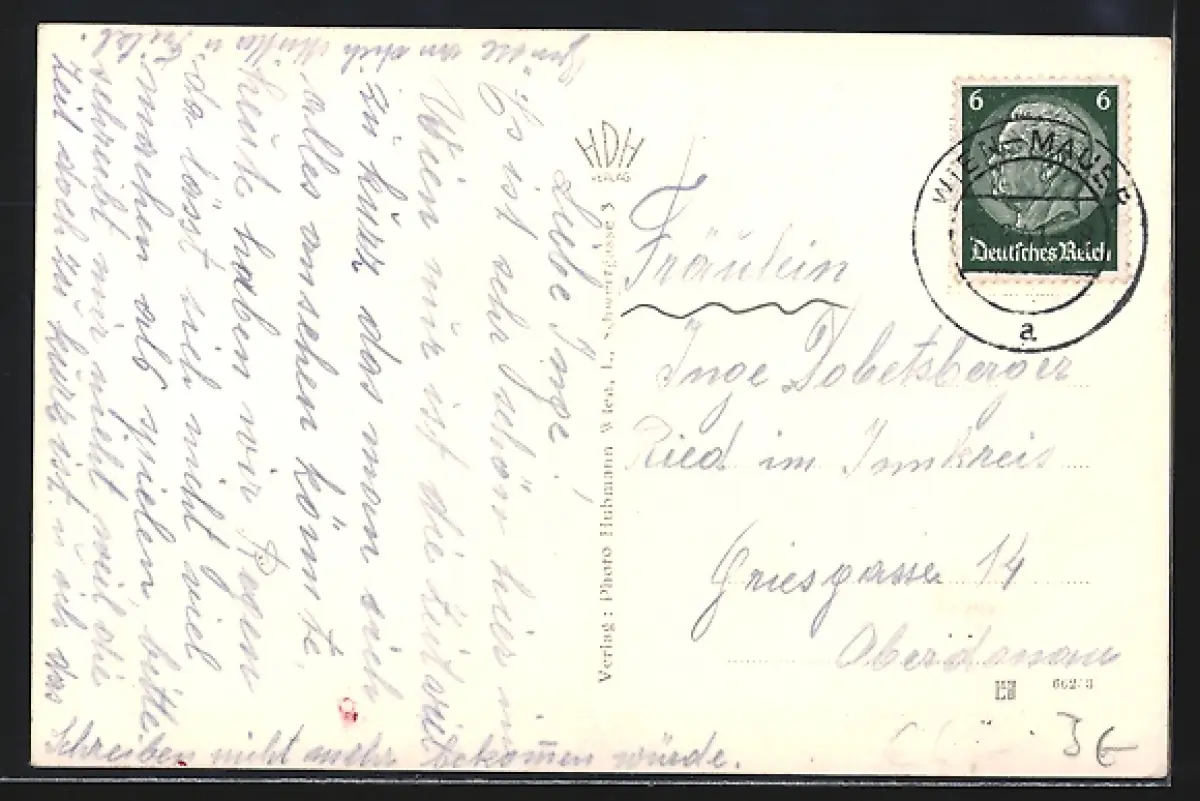 Liebe Inge!
Es ist sehr schön hier in
Wien nur ist die Zeit
zu kurz das man sich
alles ansehen kömmte
heut haben wir Regen
da lässt sich nicht viel
machen als spielen bitte
schreibt mir nicht weil die
Zeit doch zu kurz ist u ich das
Schreiben nicht mehr bekommen würde.
Grüße an dich u
HDH
VERLAG
Verlag: Photo Hubmann Wien, I., Schwertgasse 3
6 6
Deutsches Reich
WIEN-MAUER
a
Fräulein
Inge Dobetsberger
Ried im Innkreis
Griesgasse 14
Oberdonau
662/3